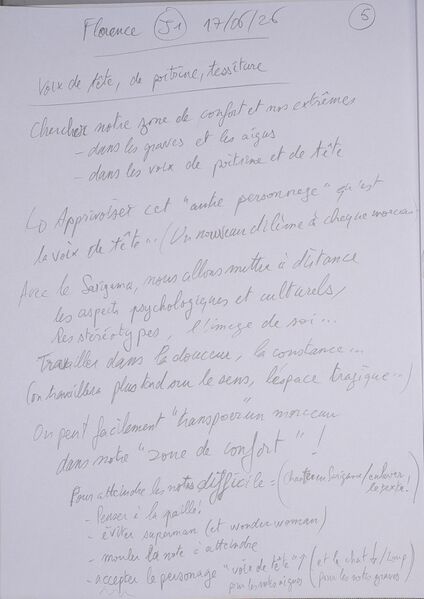 Florence (J1) 17/06/26 (5)
Voix de tête, de poitrine, tessiture
Chercher notre zone de confort et nos extrêmes
- dans les graves et les aigus
- dans les voix de poitrine et de tête
↳ Apprivoiser cet "autre personnage" qu'est
la voix de tête... (Un nouveau dilème à chaque morceau
Avec le Sarigama, nous allons mettre à distance
les aspects psychologiques et culturels,
les stéréotypes, l'image de soi...
Travailler dans la douceur, la constance...
(on travaillera plus tard sur le sens, l'espace tragique...)
On peut facilement "transposer" un morceau
dans notre "zone de confort" !
Pour atteindre les notes difficile = (chanter en Sarigama / enlever
le texte!)
- Penser à la paille!
- éviter superman (et wonder woman)
- mouler la note à atteindre
- accepter le personage "voix de tête" (et le chat / Loup
pour les notes aigues pour les notes graves)